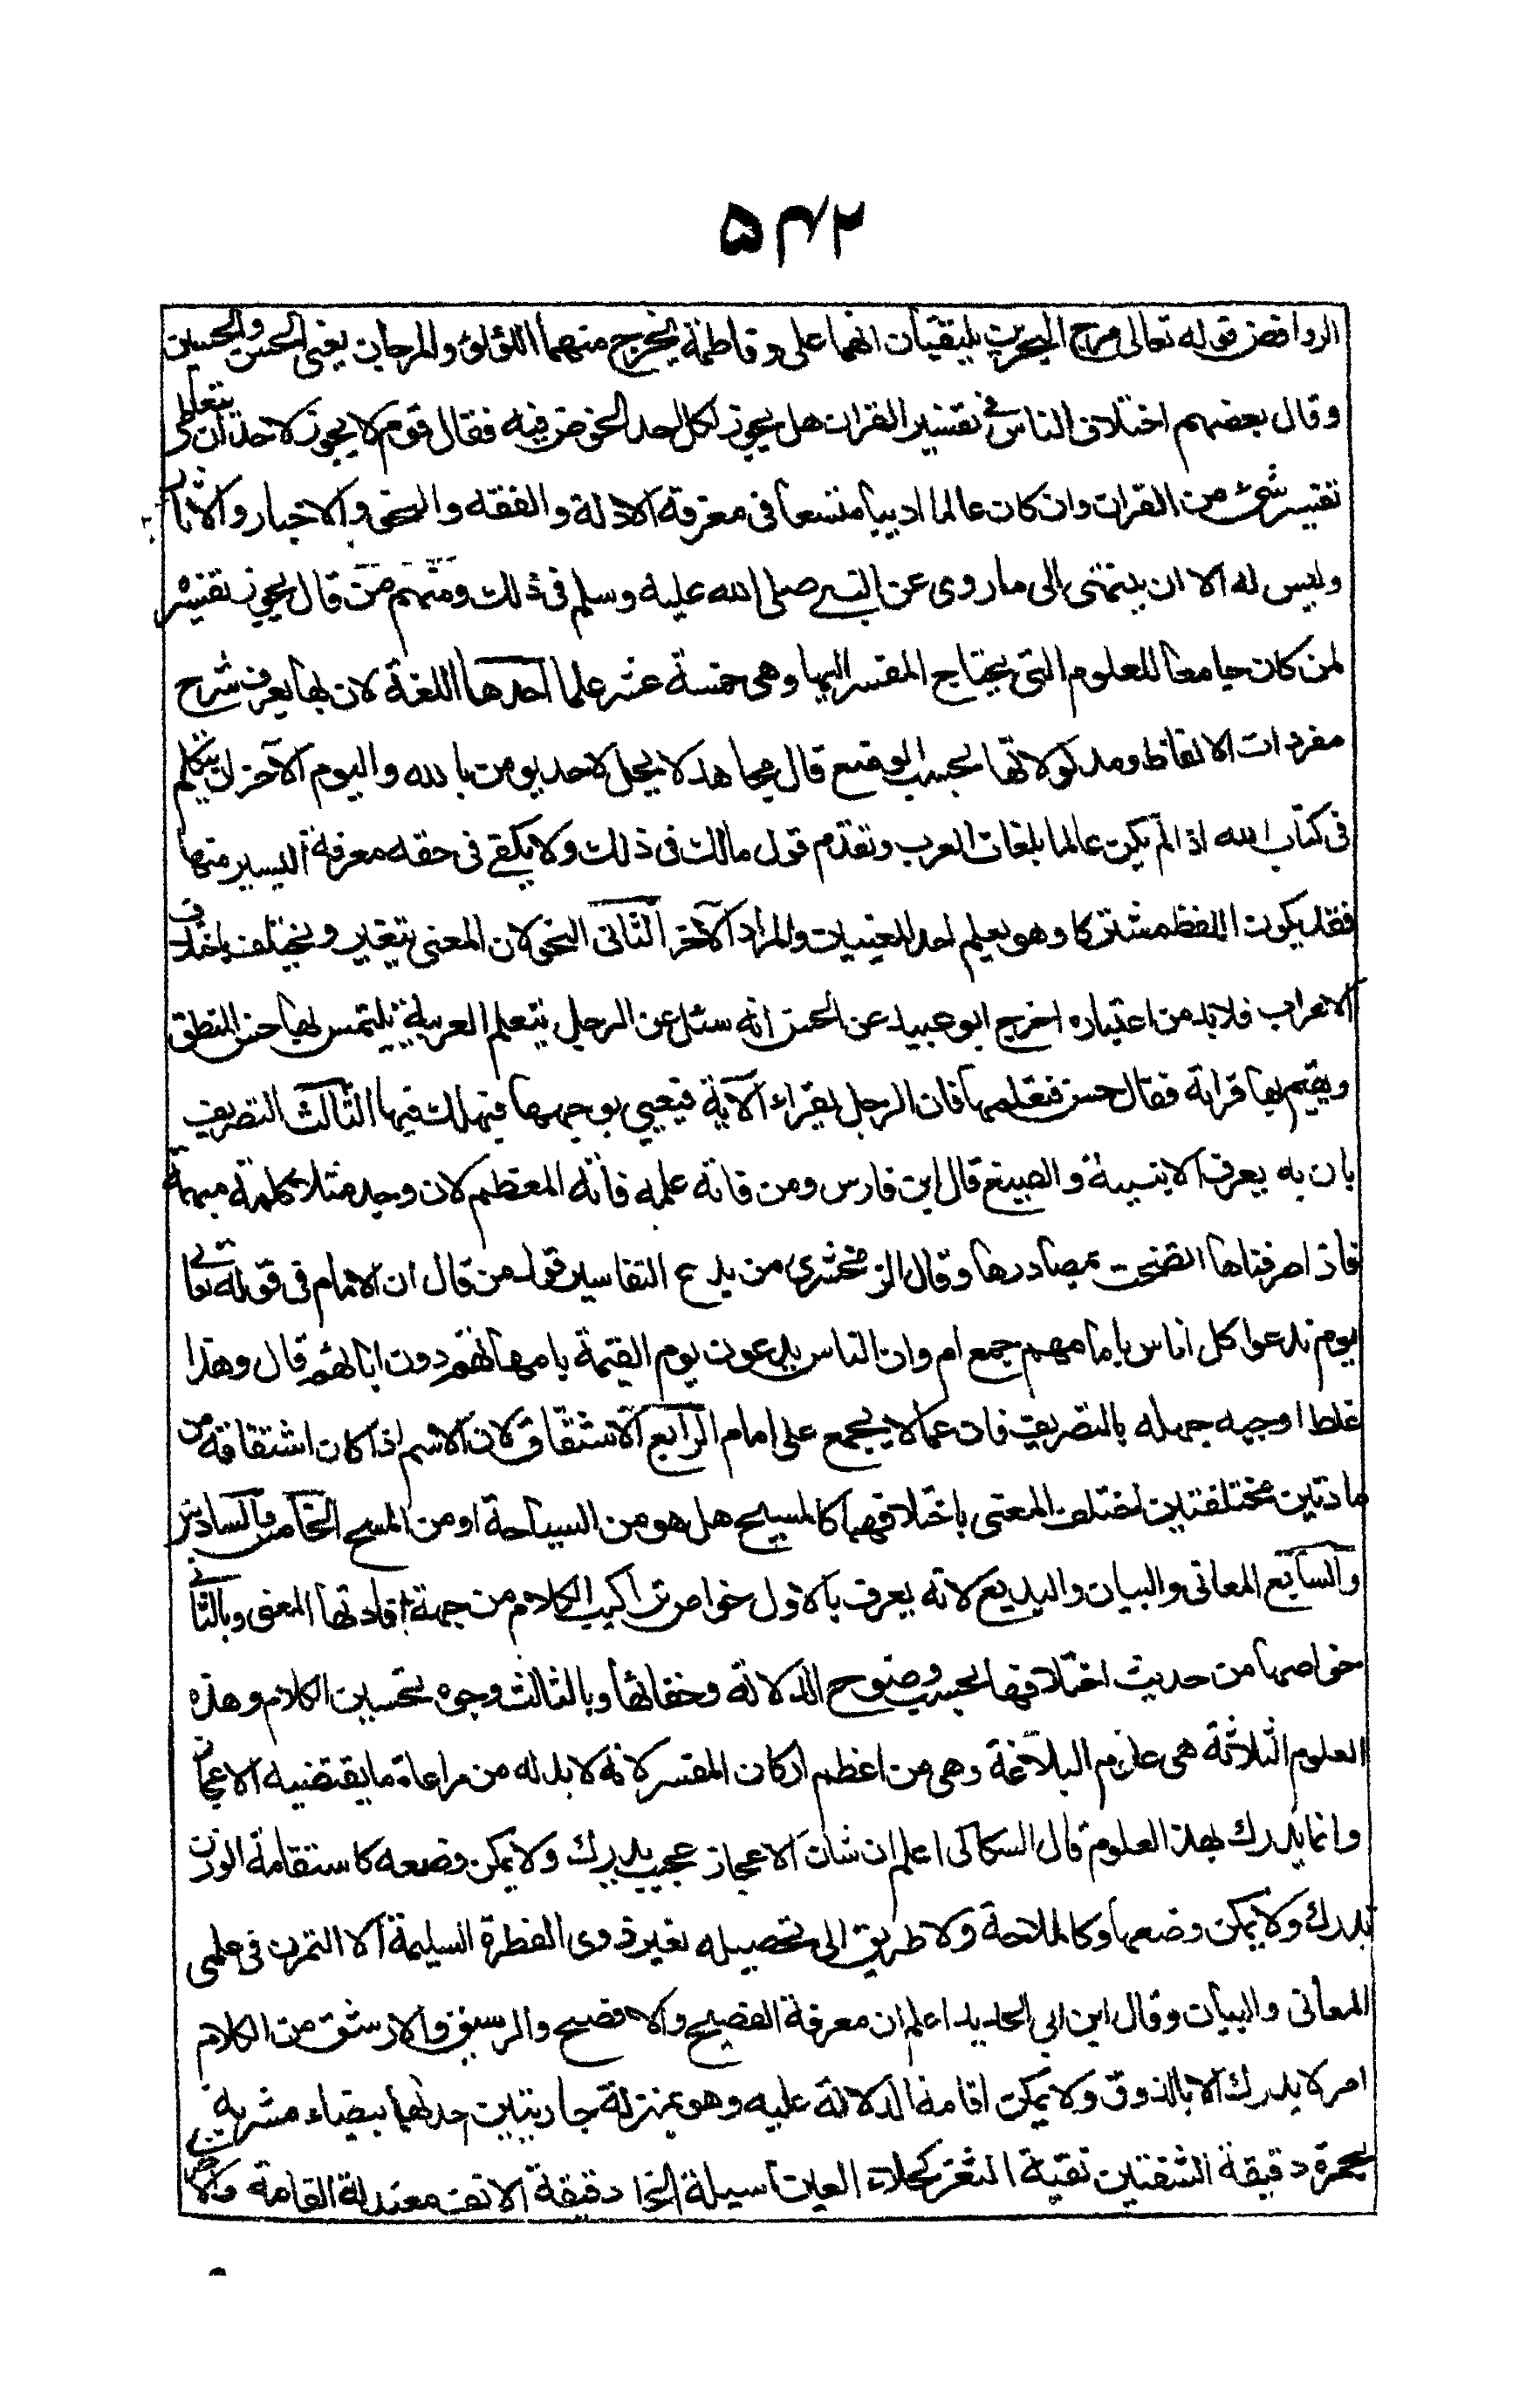 ۵۴۲
الروافض قوله تعالى مرج البحرين يلتقيان انهما على وفاطمة يخرج منهما اللؤلؤ والمرجان يعنى الحسن والحسين
وقال بعضهم اختلاف الناس فى تفسير القران هل يجوز لكل احد الخوض فيه فقال قوم لا يجوز لاحد ان يتعاطى
تفسير شئ من القران وان كان عالما اديبا متسعا فى معرفة الادلة والفقه والنحو والاخبار والاثار
وليس له الا ان ينتهى الى ما روى عن النبى صلى الله عليه وسلم فى ذلك ومنهم من قال يجوز تفسيره
لمن كان جامعا للعلوم التى يحتاج المفسر اليها وهى خمسة عشر علما احدها اللغة لان بها يعرف شرح
مفردات الالفاظ ومدلولاتها بحسب الوضع قال مجاهد لا يحل لاحد يومن بالله واليوم الآخر ان يتكلم
فى كتاب الله اذا لم يكن عالما بلغات العرب وتقدم قول مالك فى ذلك ولا يكفى فى حقه معرفة اليسير منها
فقد يكون اللفظ مشتركا وهو يعلم احد المعنيين والمراد الآخر الثانى النحو لان المعنى يتغير ويختلف باختلاف
الاعراب فلابد من اعتباره اخرج ابو عبيد عن الحسن انه سئل عن الرجل يتعلم العربية يلتمس بها حسن المنطق
ويقيم بها قراءته فقال حسن فتعلمها فان الرجل يقراء الآية فيعيى بوجهها فيهلك فيها الثالث التصريف
بان به يعرف الابنية والصيغ قال ابن فارس ومن فاته علمه فاته المعظم لان وجد مثلا كلمة مبهمة
فاذا صرفناها اتضحت بمصادرها وقال الزمخشرى من بدع التفاسير قول من قال ان الامام فى قوله تعالى
يوم ندعوا كل اناس بامامهم جمع ام وان الناس يدعون يوم القيمة بامهاتهم دون ابائهم قال وهذا
غلط اوجبه جهله بالتصريف فان اما لا يجمع على امام الرابع الاشتقاق لان الاسم اذا كان اشتقاقه من
مادتين مختلفتين اختلف المعنى باختلافهما كالمسيح هل هو من السياحة او من المسح الخامس والسادس
والسابع المعانى والبيان والبديع لانه يعرف بالاول خواص تراكيب الكلام من جهة افادتها المعنى وبالثانى
خواصها من حديث اختلافها بحسب وضوح الدلالة وخفائها وبالثالث وجوه تحسين الكلام وهذه
العلوم الثلاثة هى علوم البلاغة وهى من اعظم اركان المفسر لانه لابد له من مراعاة ما يقتضيه الاعجاز
وانما يدرك بهذ العلوم قال السكاكى اعلم ان شان الاعجاز عجيب يدرك ولا يمكن وصفه كاستقامة الوزن
تدرك ولا يمكن وصفها وكالملاحة ولا طريق الى تحصيله لغير ذوى الفطرة السليمة الا التمرن فى علمى
المعانى والبيان وقال ابن ابى الحديد اعلم ان معرفة الفصيح والافصح والرشيق والارشق من الكلام
امر لا يدرك الا بالذوق ولا يمكن اقامة الدلالة عليه وهو بمنزلة جاريتين احدهما بيضاء مشربة
بحمرة دقيقة الشفتين نقية الثغر كحلاء العين اسيلة الخد دقيقة الانف معتدلة القامة والاخرى